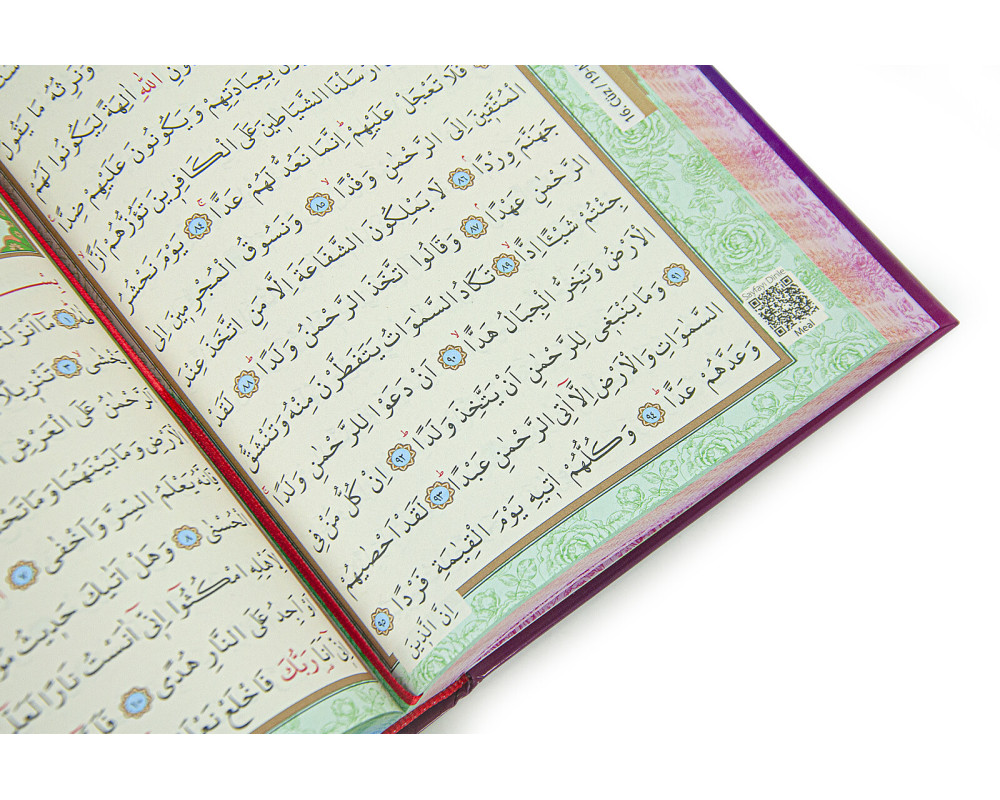 وَنَرِثُهُ مَا يَقُولُ
اللّٰهِ اٰلِهَةً لِيَكُونُوا لَهُمْ
بِعِبَادَتِهِمْ وَيَكُونُونَ عَلَيْهِمْ ضِدًّا
اَرْسَلْنَا الشَّيَاطِينَ عَلَى الْكَافِرِينَ تَؤُزُّهُمْ اَزًّا
فَلَا تَعْجَلْ عَلَيْهِمْ اِنَّمَا نَعُدُّ لَهُمْ عَدًّا ٨٤ يَوْمَ نَحْشُرُ
الْمُتَّقِينَ اِلَى الرَّحْمٰنِ وَفْدًا ٨٥ وَنَسُوقُ الْمُجْرِمِينَ اِلٰى
جَهَنَّمَ وِرْدًا ٨٦ لَا يَمْلِكُونَ الشَّفَاعَةَ اِلَّا مَنِ اتَّخَذَ عِنْدَ
الرَّحْمٰنِ عَهْدًا ٨٧ وَقَالُوا اتَّخَذَ الرَّحْمٰنُ وَلَدًا ٨٨ لَقَدْ
جِئْتُمْ شَيْـًٔا اِدًّا ٨٩ تَكَادُ السَّمٰوَاتُ يَتَفَطَّرْنَ مِنْهُ وَتَنْشَقُّ
الْاَرْضُ وَتَخِرُّ الْجِبَالُ هَدًّا ٩٠ اَنْ دَعَوْا لِلرَّحْمٰنِ وَلَدًا
٩١ وَمَا يَنْبَغِى لِلرَّحْمٰنِ اَنْ يَتَّخِذَ وَلَدًا ٩٢ اِنْ كُلُّ مَنْ فِى
السَّمٰوَاتِ وَالْاَرْضِ اِلَّٓا اٰتِى الرَّحْمٰنِ عَبْدًا ٩٣ لَقَدْ اَحْصٰيهُمْ
وَعَدَّهُمْ عَدًّا ٩٤ وَكُلُّهُمْ اٰتٖيهِ يَوْمَ الْقِيٰمَةِ فَرْدًا ٩٥
اِنَّ الَّذٖينَ
16. Cüz / 19
Sayfayı Dinle
Meal
١ مَٓا اَنْزَلْنَا
يَخْشٰى ٣ تَنْزٖيلًا
اَلرَّحْمٰنُ عَلَى الْعَرْشِ
الْاَرْضِ وَمَا بَيْنَهُمَا وَمَا تَحْتَ
فَاِنَّهُ يَعْلَمُ السِّرَّ وَاَخْفٰى ٧
الْحُسْنٰى ٨ وَهَلْ اَتٰيكَ حَدٖيثُ
لِاَهْلِهِ امْكُثُٓوا اِنّٖٓى اٰنَسْتُ نَارًا لَعَلّٖٓى
اَوْ اَجِدُ عَلَى النَّارِ هُدًى ١٠
اِنّٖٓى اَنَا رَبُّكَ فَاخْلَعْ نَعْلَيْكَ